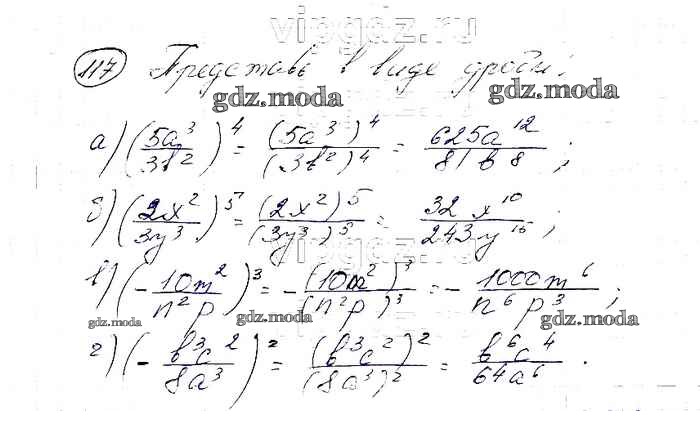 vipgdz.ru
117 Представь в виде дроби:
gdz.moda gdz.moda
а) (5a³/3b²)⁴ = (5a³)⁴/(3b²)⁴ = 625a¹²/81b⁸;
vipgdz.ru
б) (2x²/3y³)⁵ = (2x²)⁵/(3y³)⁵ = 32x¹⁰/243y¹⁵;
vipgdz.ru
в) (-10m²/n²p)³ = -(10m²)³/(n²p)³ = -1000m⁶/n⁶p³;
gdz.moda gdz.moda gdz.moda
г) (-b³c²/8a³)² = (b³c²)²/(8a³)² = b⁶c⁴/64a⁶.